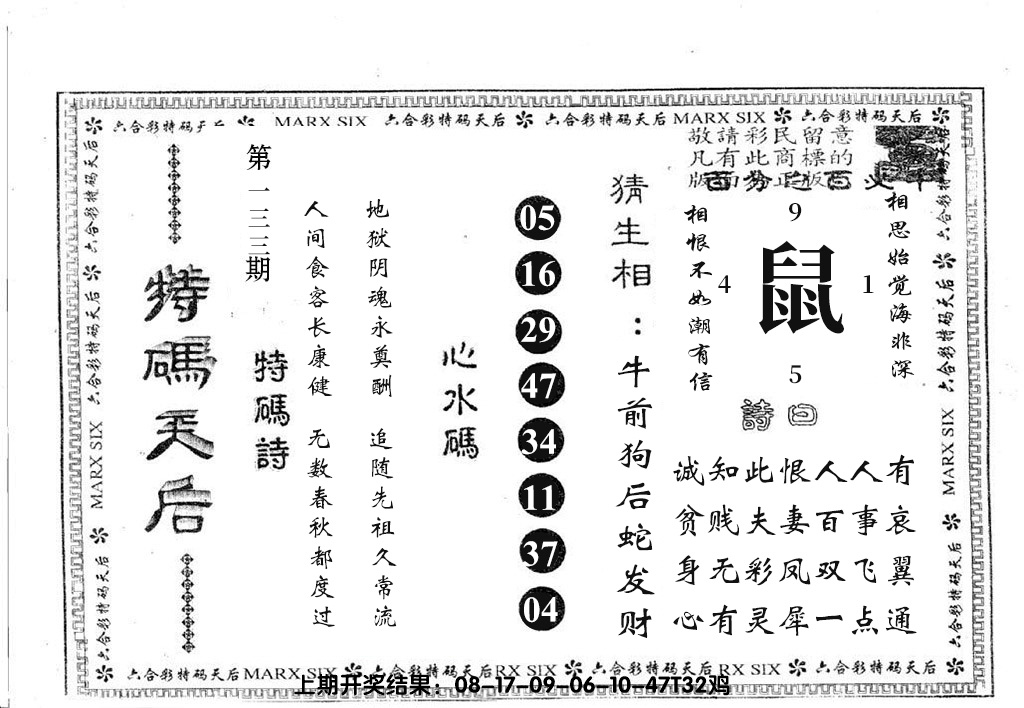 六合彩特码天 MARX SIX 六合彩特码天后 六合彩特码天后 MARX SIX 六合彩特码天后
六合彩特码天后 六合彩特码天后 MARX SIX 六合彩特码天后
特碼天后
第一二三期
特碼詩
人间食客长康健 无数春秋都度过
地狱阴魂永奠酬 追随先祖久常流
心水碼
05
16
29
47
34
11
37
04
猜生相：牛前狗后蛇发财
敬請彩民留意
凡有此商標的
相恨不如潮有信
9
4 鼠 1
5
相思始觉海非深
詩曰
诚知此恨人人有
贫贱夫妻百事哀
身无彩凤双飞翼
心有灵犀一点通
六合彩特码天后 六合彩特码天后 MARX SIX 六合彩特码天后
六合彩特码天后 MARX SIX 六合彩特码天后 RX SIX 六合彩特码天后 RX SIX 六合彩特码天后
上期开奖结果：08-17-09-06-10-47T32鸡